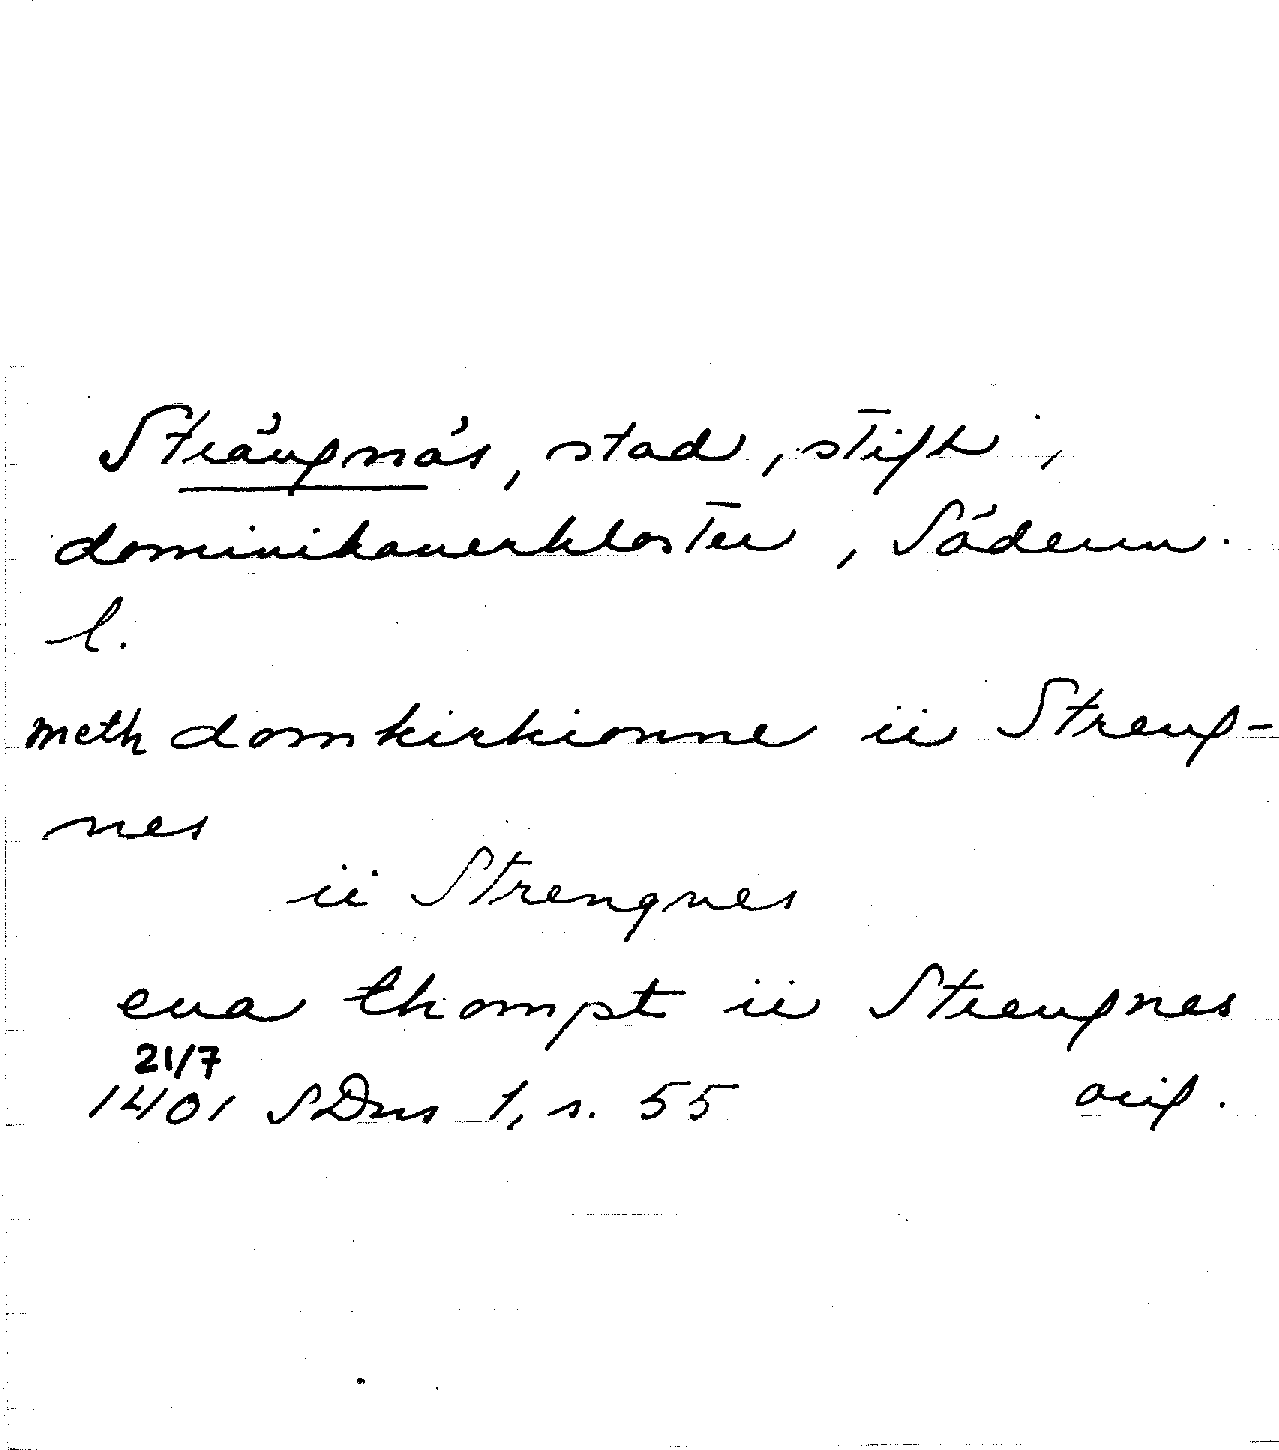 Strängnäs, stad, stift,
dominikanerkloster, Söderm.
l.
meth domkirkionne ii Streng-
nes
ii Strengnes
ena thompt ii Strengnes
21/7
1401 SDns 1, s. 55 orig.